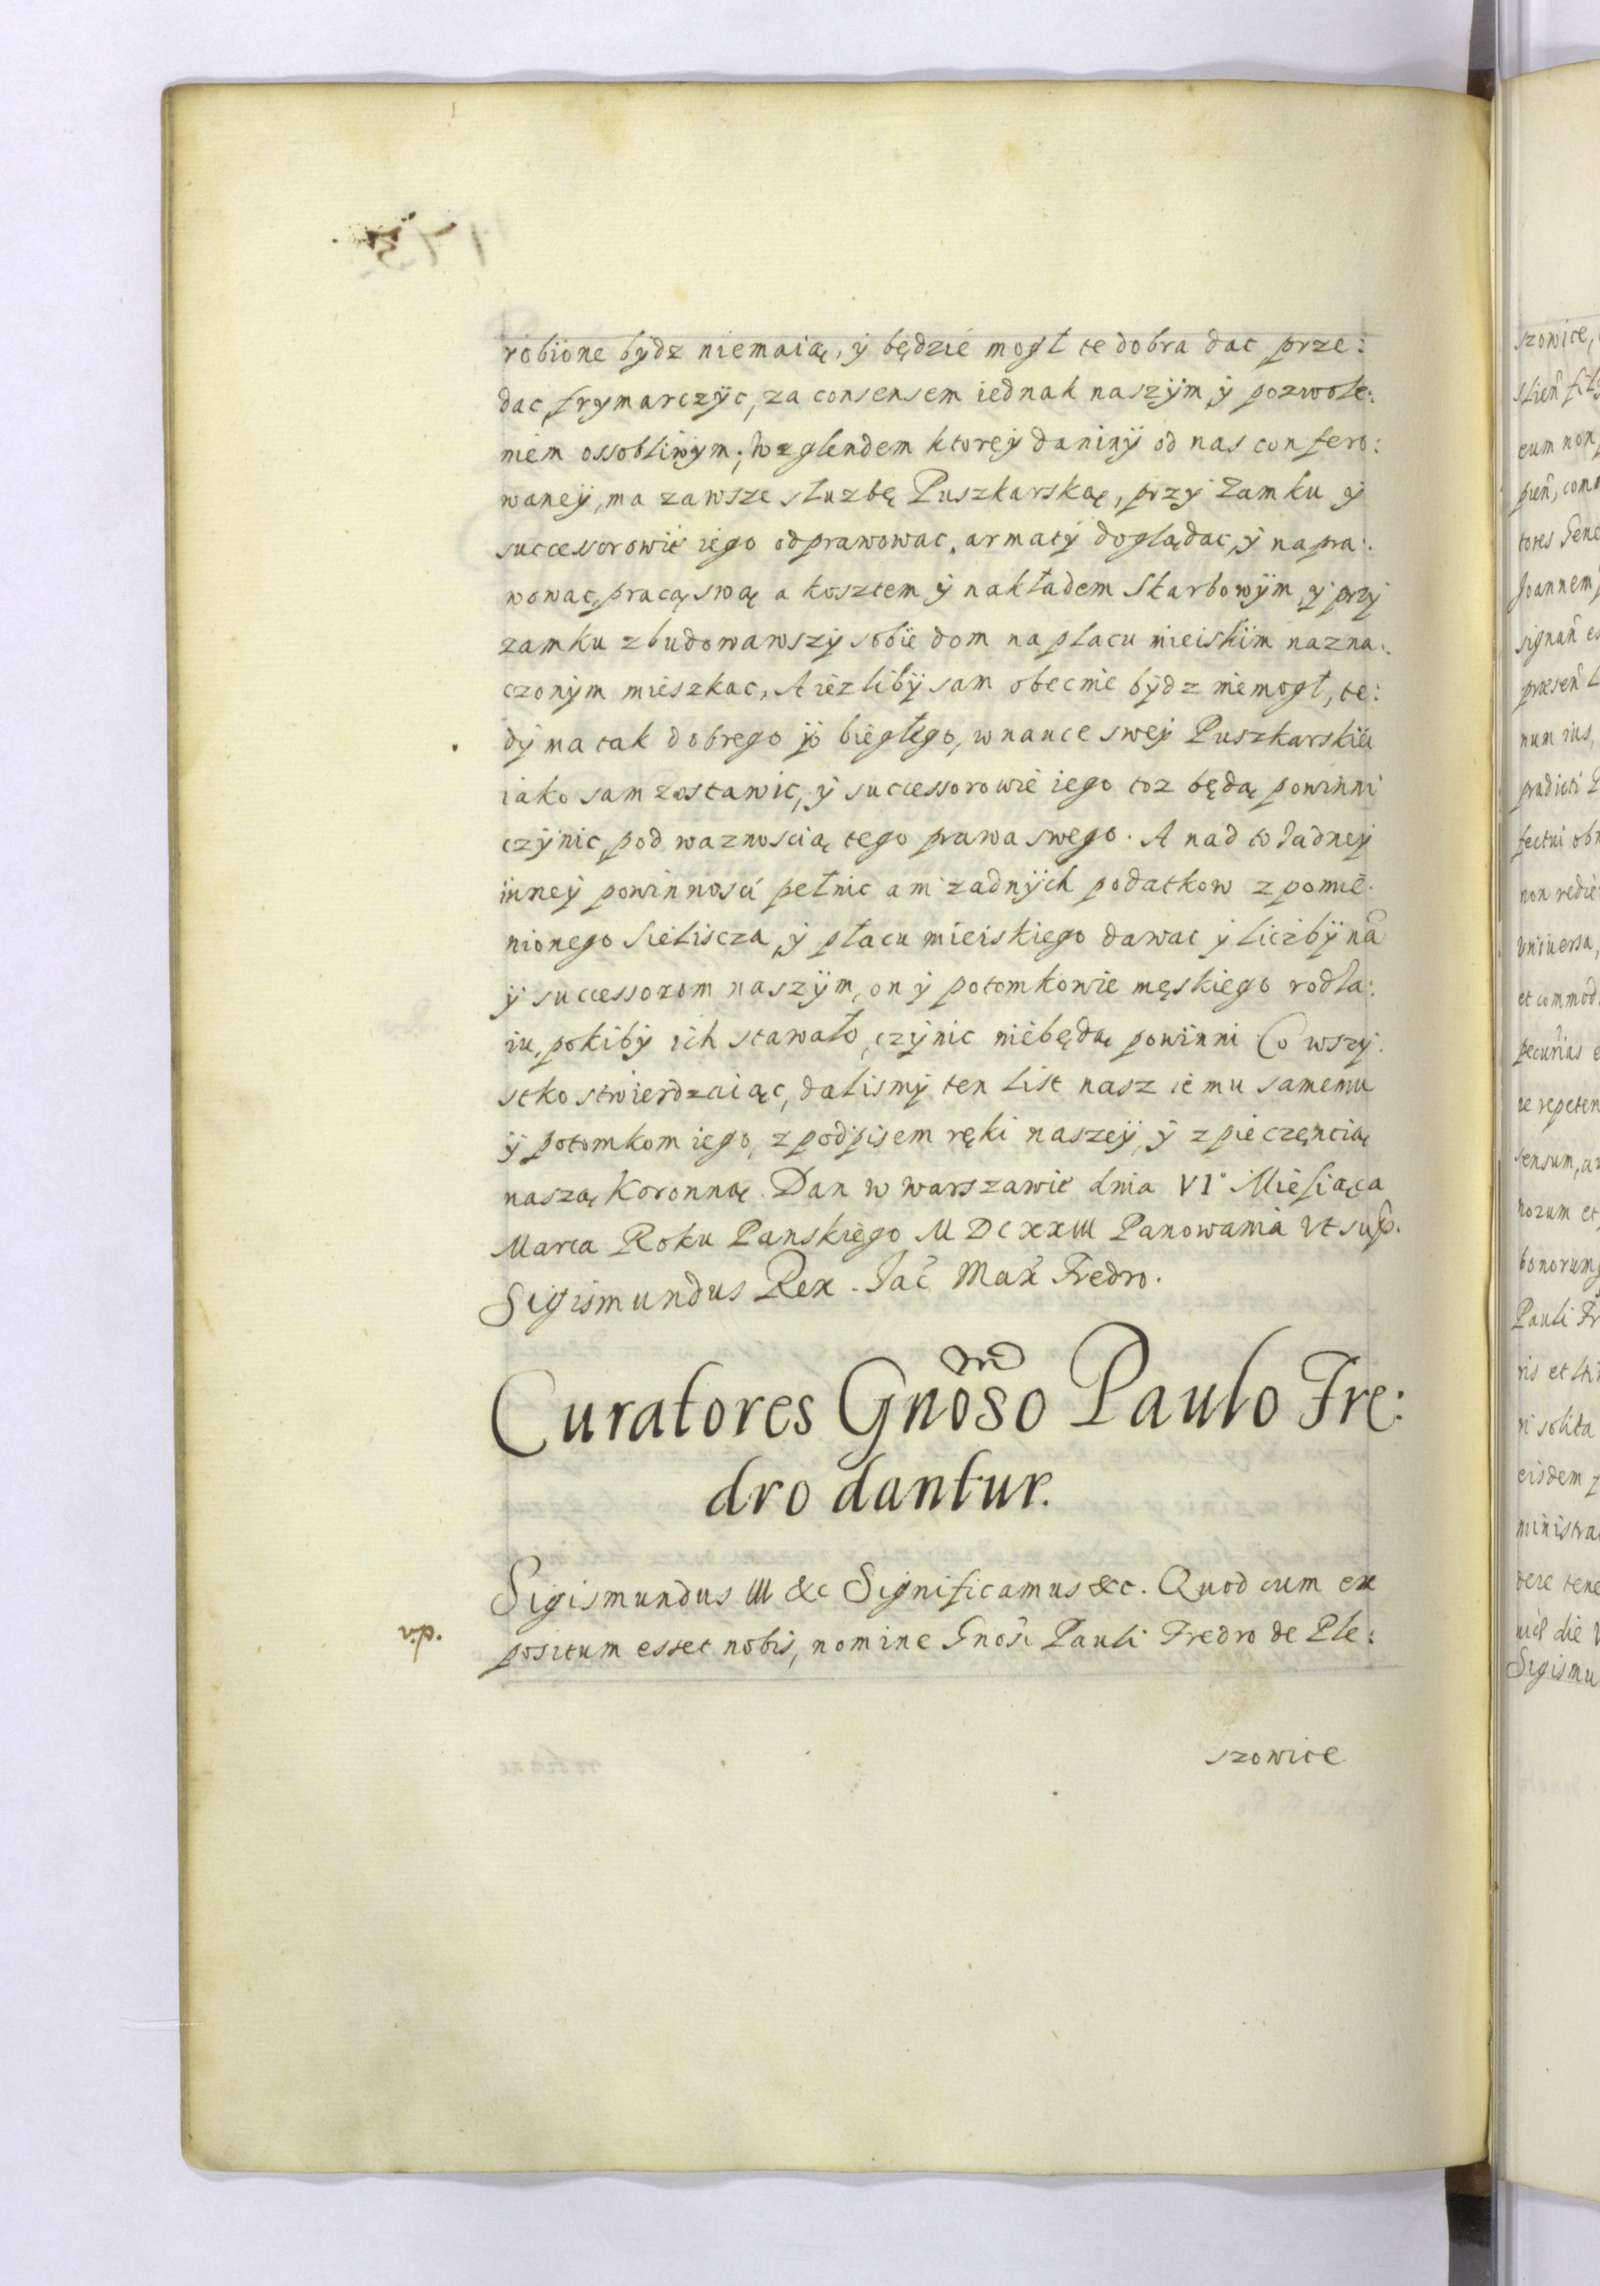 robione bydz niemaią, ÿ będzie mogł te dobra dac prze:
dac, frymarczÿc, za consensem iednak naszÿm ÿ pozwole:
niem ossobliwym; Wzglendem ktoreÿ daninÿ od nas confero:
waneÿ, ma zawsze słuzbę Puszkarską, przÿ Zamku ÿ
successorowie iego odprawowac, armatÿ doglądac, ÿ napra:
wowac, pracą swą a kosztem ÿ nakładem Skarbowÿm, ÿ przÿ
zamku zbudowawszÿ sobie dom na placu mieiskim nazna:
czonÿm mieszkac, A iezlibÿ sam obecnie bÿdz niemogł, te:
dÿ ma tak dobrego ÿ biegłego, w nauce sweÿ Puszkarskiei
iako sam zostawic, ÿ successorowie iego toz będą powinni
czÿnic, pod waznoscią tego prawa swego. A nad to żadneÿ
inneÿ powinnosci pełnic ani zadnÿch podatkow z pomie:
nionego Sieliscza, ÿ placu mieiskiego dawac ÿ liczbÿ nã
ÿ successorom naszÿm, on ÿ potomkowie męskiego rodza:
iu, pokibÿ ich stawało, czÿnic niebędą powinni Co wszÿ:
stko stwierdzaiąc, dalismÿ ten list nasz iemu samemu
ÿ potomkom iego, z podpisem ręki naszeÿ, ÿ z pieczęncią
naszą Koronną. Dan w warszawie dnia VI° Miesiąca
Marca Roku Panskiego MDCXXIII Panowania Vt sup.
Sigismundus Rex. Jac Max Fredro.
Curatores Gnoso Paulo Fre:
dro dantur.
Sigismundus III &c Significamus &c. Quod cum ex
v.p.
positum esset nobis, nomine Gnosi Pauli Fredro de Ple:
szowice
szowice,
eum non
Joannem
num ius,
non redie
vniuersa,
et commod
re repeten
sensum, a
norum et
bonorum
Pauli Fr
ri solita
eisdem
ministra
dere tene
Sigismu